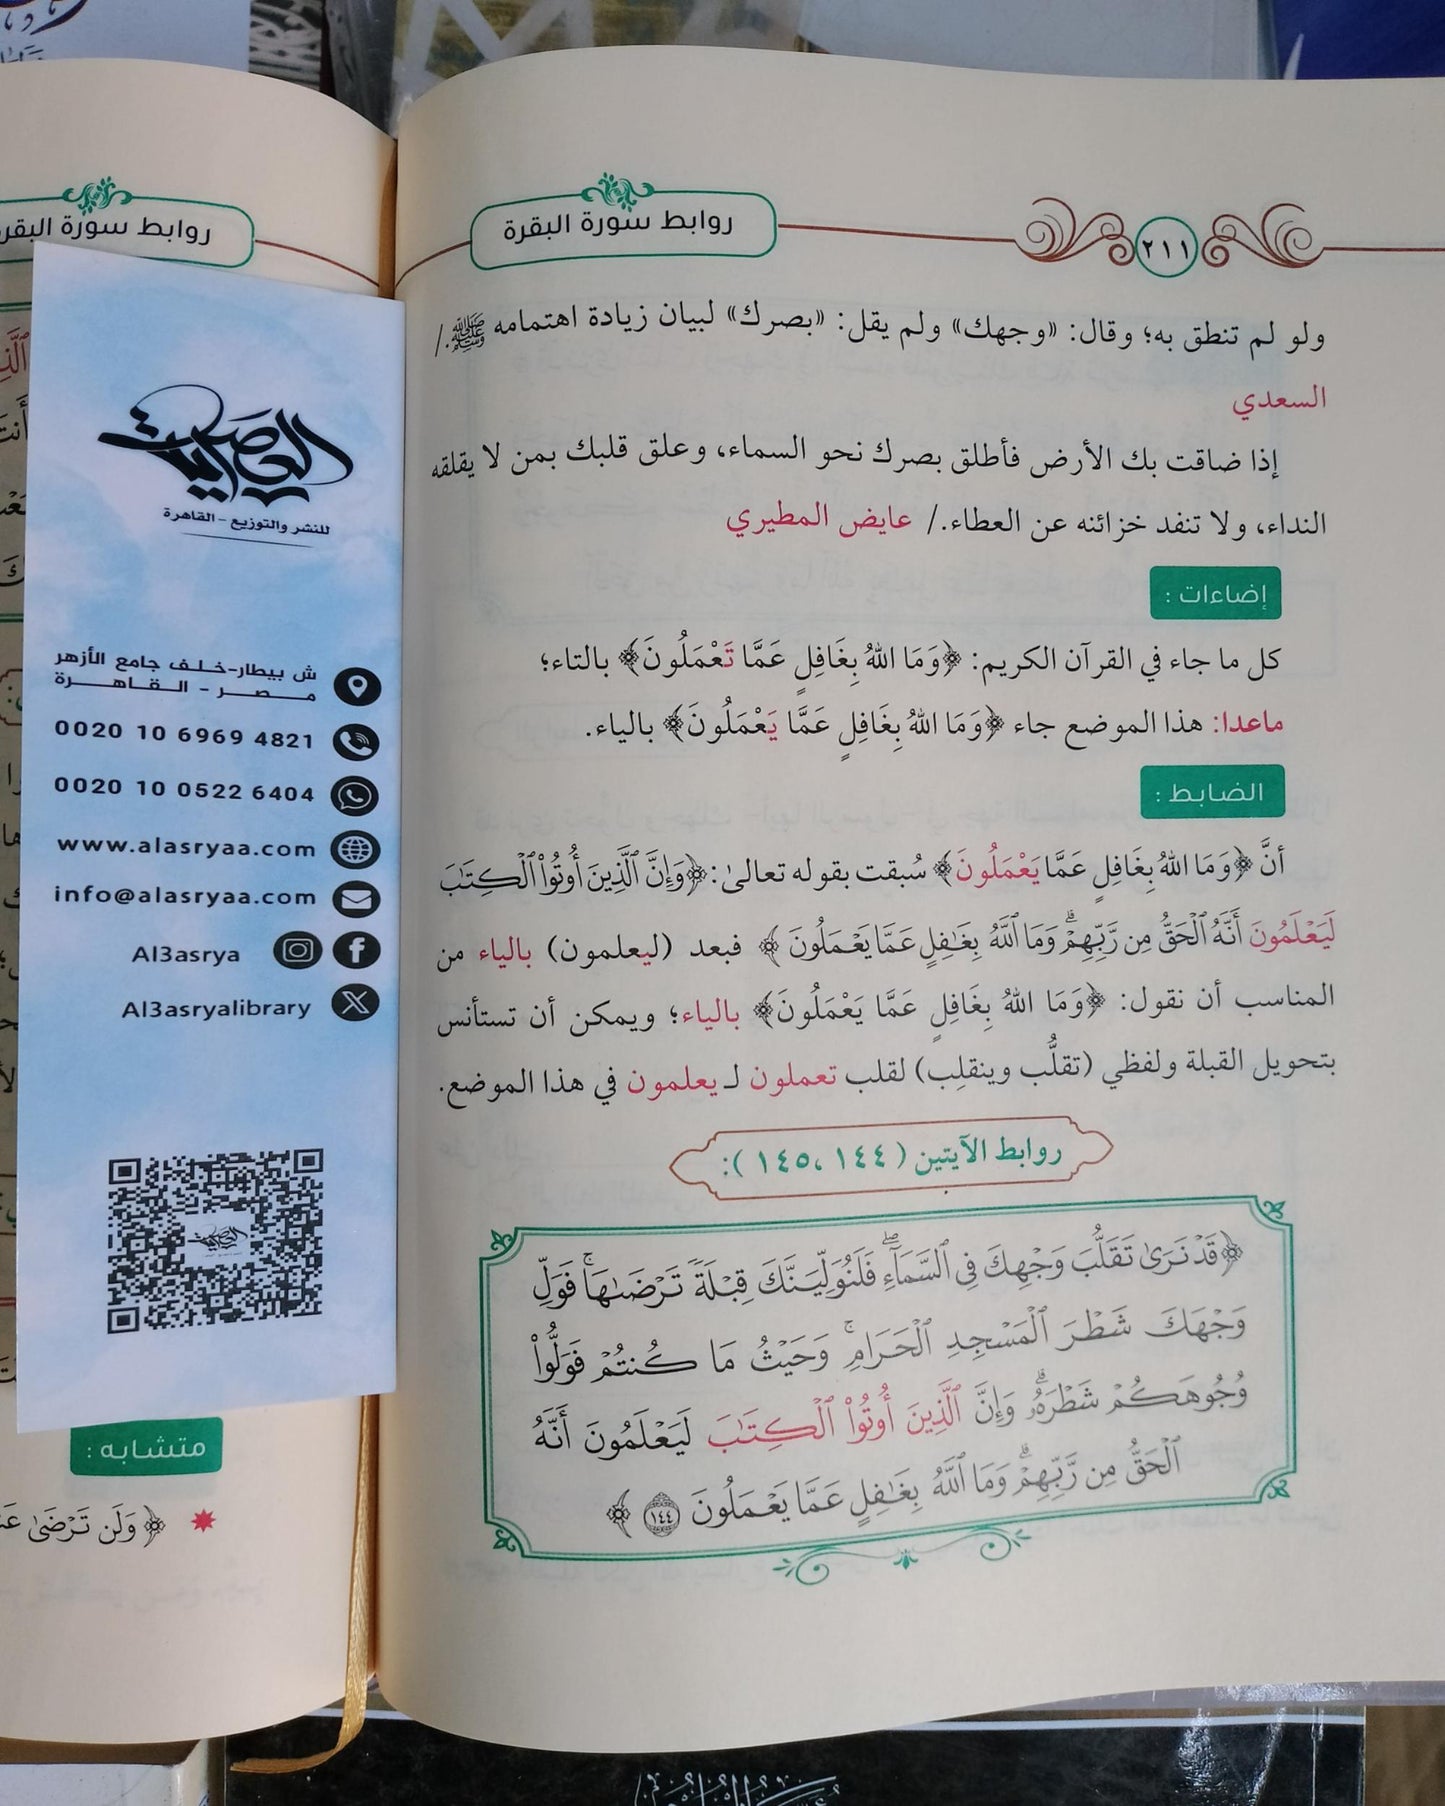 روابط سورة البقرة
٢١١
ولو لم تنطق به؛ وقال: «وجهك» ولم يقل: «بصرك» لبيان زيادة اهتمامه ﷺ./
السعدي
إذا ضاقت بك الأرض فأطلق بصرك نحو السماء، وعلق قلبك بمن لا يقلقه
النداء، ولا تنفد خزائنه عن العطاء./ عايض المطيري
إضاءات :
كل ما جاء في القرآن الكريم: ﴿وَمَا اللهُ بِغَافِلٍ عَمَّا تَعْمَلُونَ﴾ بالتاء؛
ماعدا: هذا الموضع جاء ﴿وَمَا اللهُ بِغَافِلٍ عَمَّا يَعْمَلُونَ﴾ بالياء.
الضابط :
أنَّ ﴿وَمَا اللهُ بِغَافِلٍ عَمَّا يَعْمَلُونَ﴾ سُبقت بقوله تعالىٰ: ﴿وَإِنَّ ٱلَّذِينَ أُوتُواْ ٱلْكِتَٰبَ
لَيَعْلَمُونَ أَنَّهُ ٱلْحَقُّ مِن رَّبِّهِمْۗ وَمَا ٱللَّهُ بِغَٰفِلٍ عَمَّا يَعْمَلُونَ﴾ فبعد (ليعلمون) بالياء من
المناسب أن نقول: ﴿وَمَا اللهُ بِغَافِلٍ عَمَّا يَعْمَلُونَ﴾ بالياء؛ ويمكن أن تستأنس
بتحويل القبلة ولفظي (تقلُّب وينقلِب) لقلب تعملون لـ يعلمون في هذا الموضع.
روابط الآيتين ( ١٤٤، ١٤٥ ):
﴿قَدْ نَرَىٰ تَقَلُّبَ وَجْهِكَ فِى ٱلسَّمَآءِۖ فَلَنُوَلِّيَنَّكَ قِبْلَةً تَرْضَىٰهَاۚ فَوَلِّ
وَجْهَكَ شَطْرَ ٱلْمَسْجِدِ ٱلْحَرَامِۚ وَحَيْثُ مَا كُنتُمْ فَوَلُّواْ
وُجُوهَكُمْ شَطْرَهُۥۗ وَإِنَّ ٱلَّذِينَ أُوتُواْ ٱلْكِتَٰبَ لَيَعْلَمُونَ أَنَّهُ
ٱلْحَقُّ مِن رَّبِّهِمْۗ وَمَا ٱللَّهُ بِغَٰفِلٍ عَمَّا يَعْمَلُونَ ١٤٤﴾
روابط سورة البقرة
العصرية
للنشر والتوزيع - القاهرة
ش بيطار-خلف جامع الأزهر
مصر - القاهرة
0020 10 6969 4821
0020 10 0522 6404
www.alasryaa.com
info@alasryaa.com
Al3asrya
Al3asryalibrary
متشابه :
﴿وَلَن تَرْضَىٰ